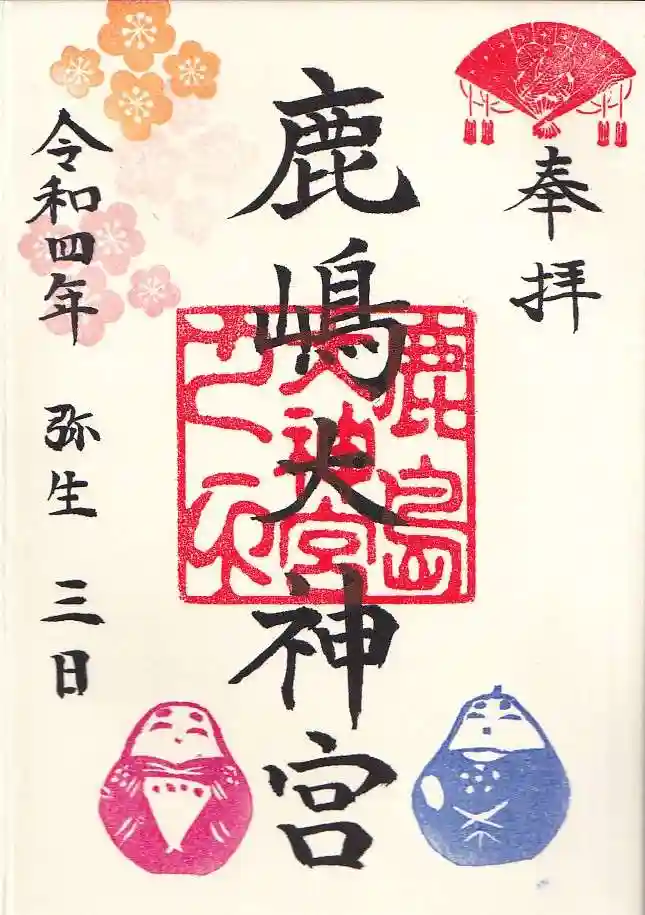 奉拝
鹿嶋大神宮
鹿島
大神宮
之印
令和四年 弥生 三日